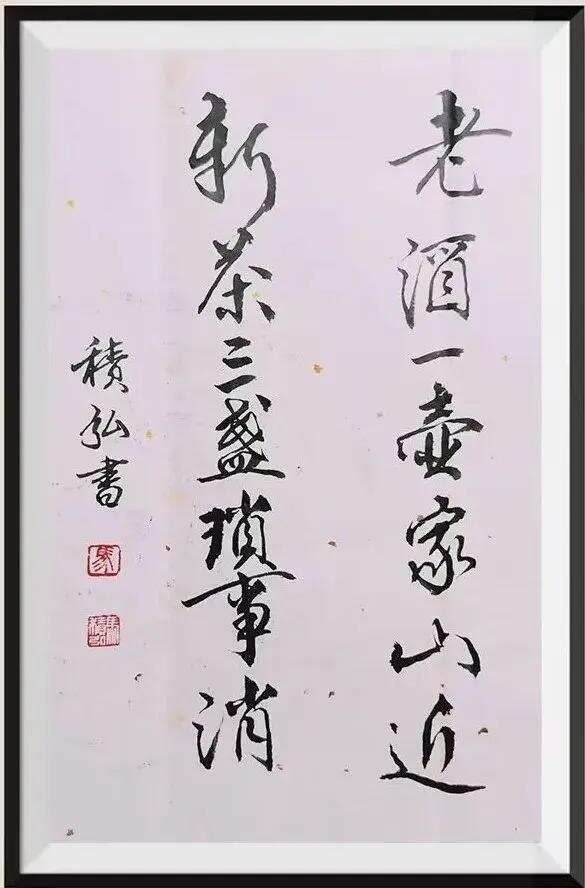 老酒一壺家山近
新茶三盞瑣事消
積弘書